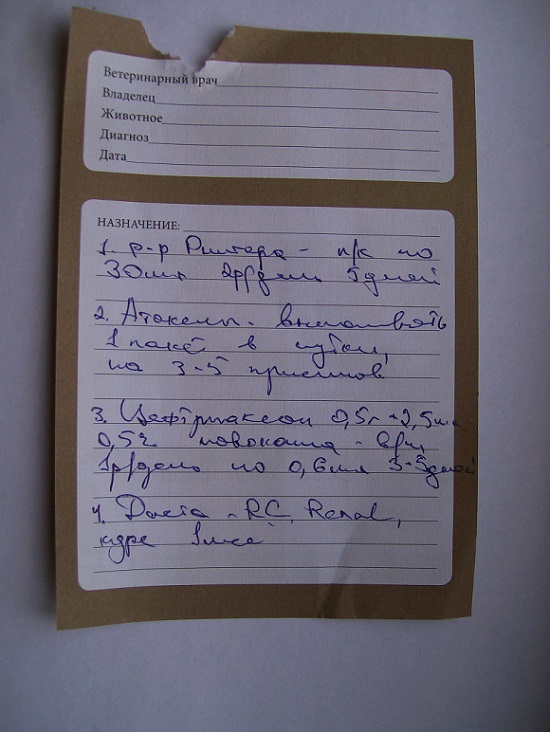 Ветеринарный врач
Владелец
Животное
Диагноз
Дата
НАЗНАЧЕНИЕ:
1. р-р Рингера - п/к по
30мл 2р/день 5дней
2. Атоксил - выпаивать
1 пакет в сутки,
на 3-5 приемов
3. Цефтриаксон 0,5г + 2,5мл
0,5% новокаина - в/м,
1р/день по 0,6мл 3-5дней
4. Диета - RC Renal,
1мес